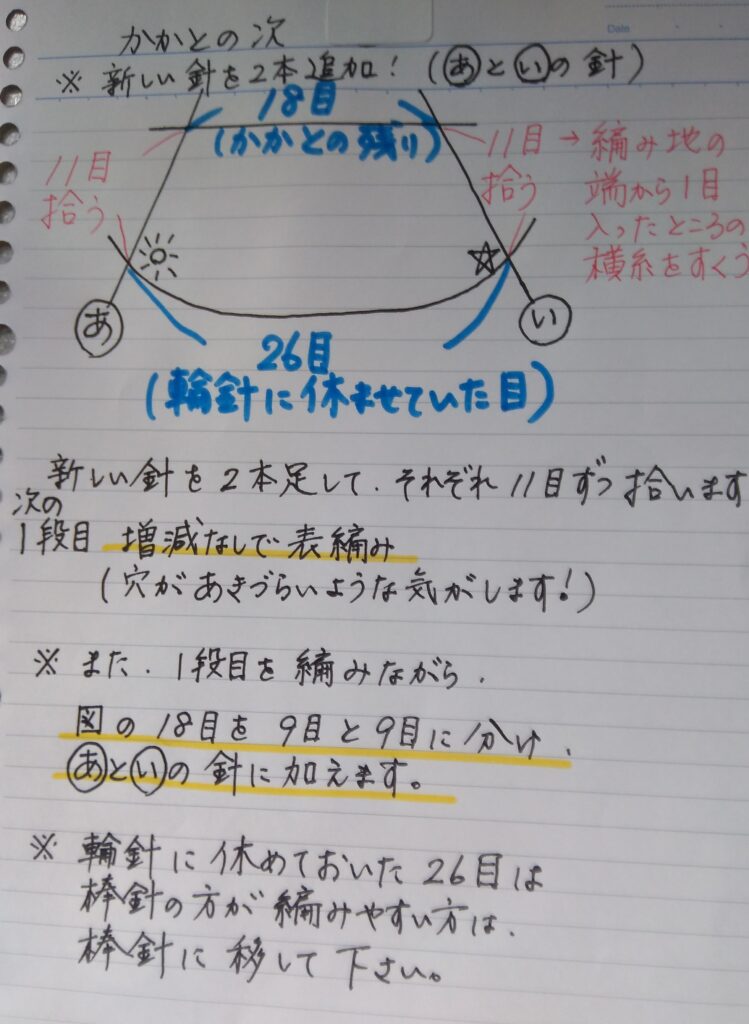 Date
かかとの次
※ 新しい針を2本追加！（あといの針）
18目
（かかとの残り）
11目
拾う
11目 → 編み地の
拾う 端から1目
入ったところの
横糸をすくう
あ
い
26目
（輪針に休ませていた目）
新しい針を2本足して、それぞれ11目ずつ拾います
次の
1段目 増減なしで表編み
（穴があきづらいような気がします！）
※ また、1段目を編みながら、
図の18目を9目と9目に分け、
あといの針に加えます。
※ 輪針に休めておいた26目は
棒針の方が編みやすい方は、
棒針に移して下さい。